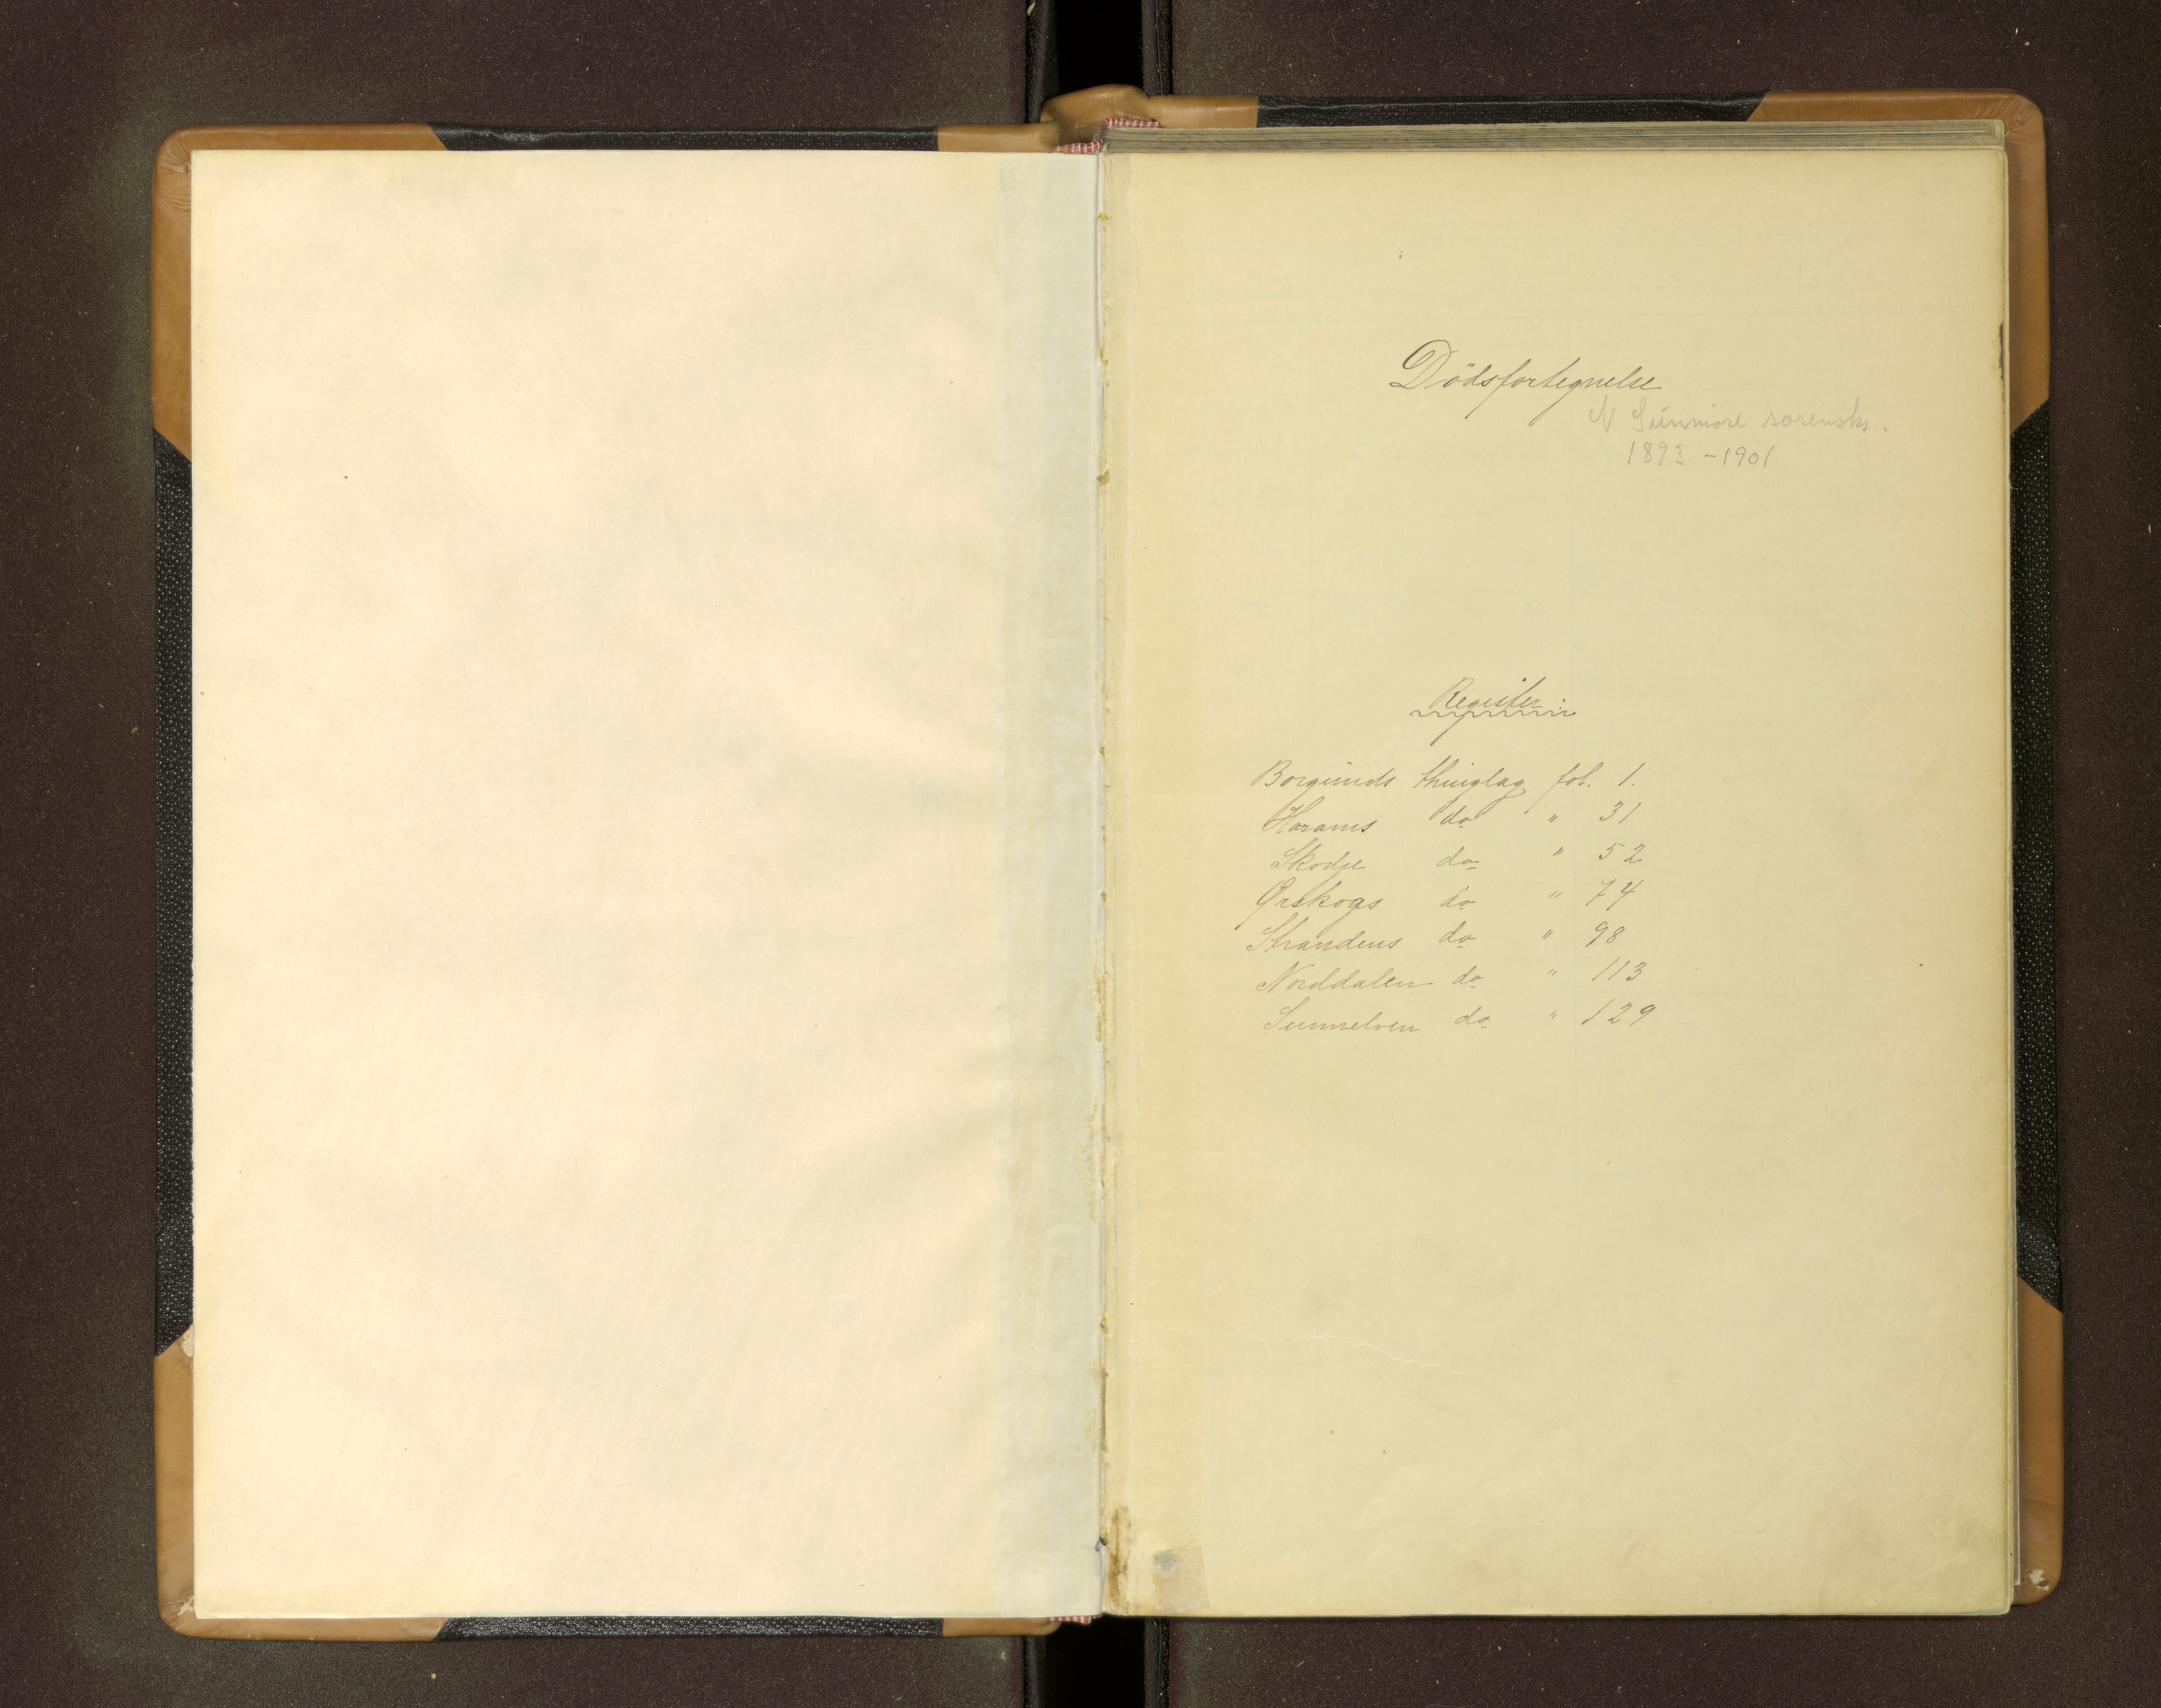 Dödsfortegnelse
N. Sunmöre sorensks.
1893 - 1901
Register:
Borgunds thinglag fol. 1.
Harams do " 31
Skodje do " 52
Ørskogs do " 74
Strandens do " 98
Norddalen do " 113
Sunnelven do " 129